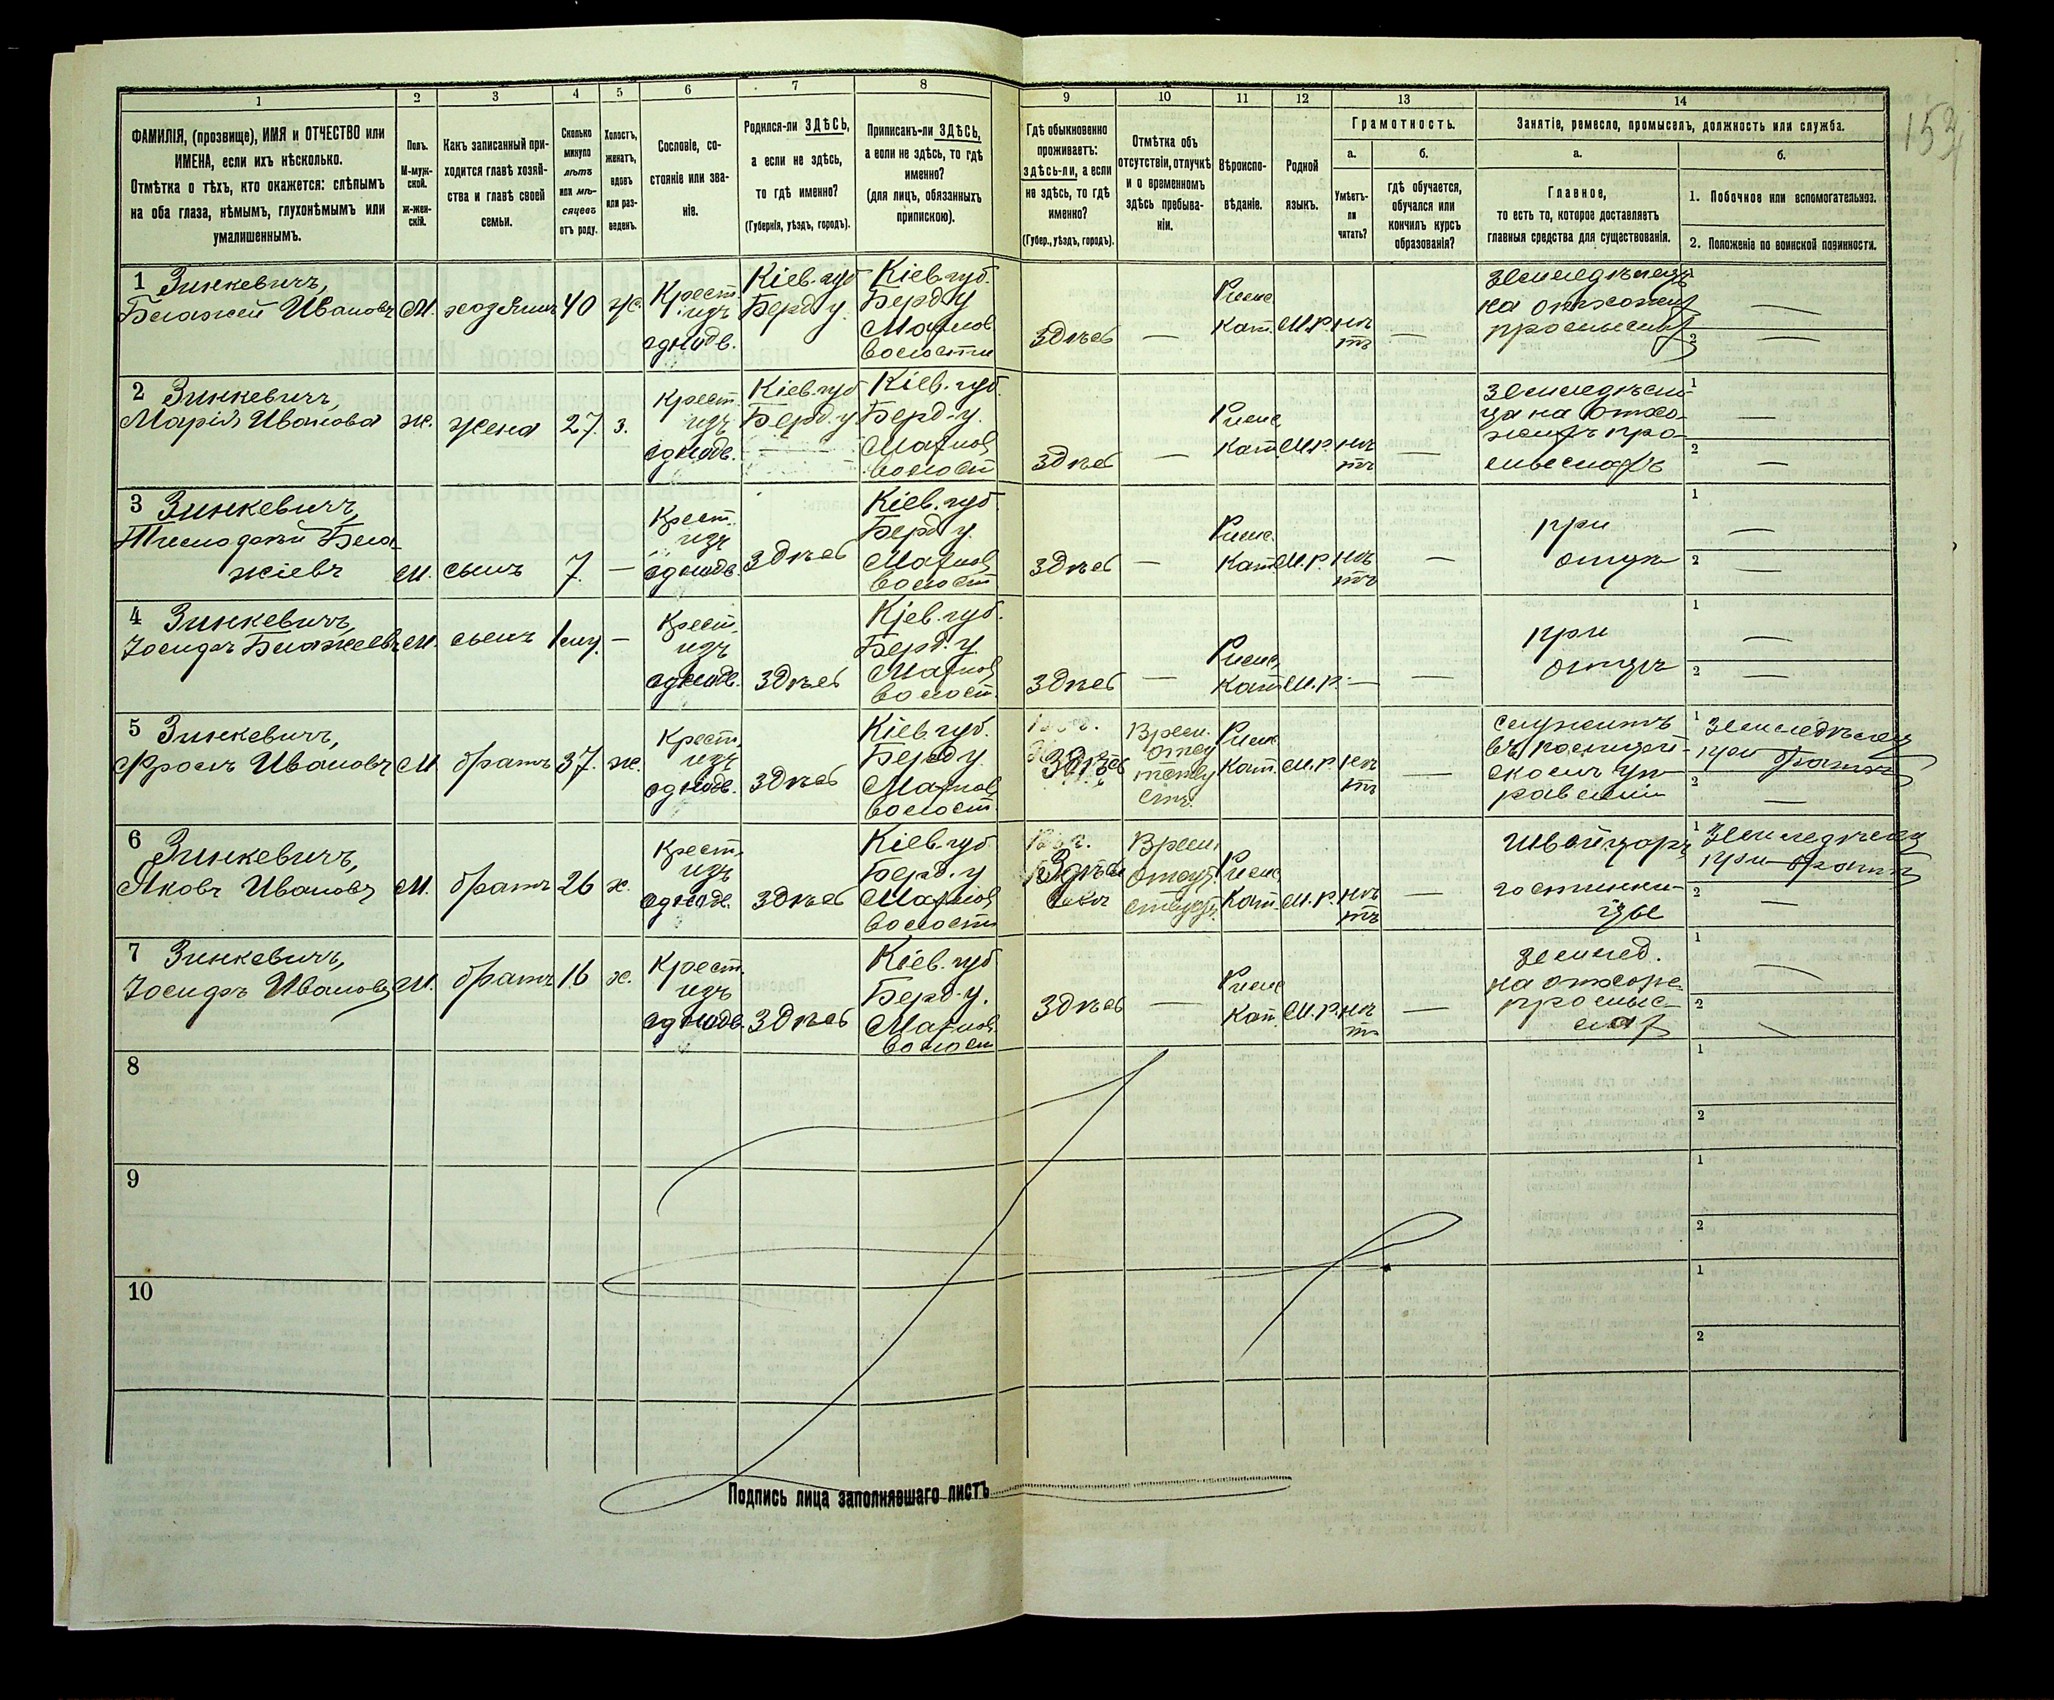 153
1 2 3 4 5 6 7 8 9 10 11 12 13 14
ФАМИЛІЯ, (прозвище), ИМЯ и ОТЧЕСТВО или
ИМЕНА, если ихъ нѣсколько.
Отмѣтка о тѣхъ, кто окажется: слѣпымъ
на оба глаза, нѣмымъ, глухонѣмымъ или
умалишеннымъ.
Полъ.
М-муж-
ской.
Ж-жен-
скій.
Какъ записанный при-
ходится главѣ хозяй-
ства и главѣ своей
семьи.
Сколько
минуло
лѣтъ
или мѣ-
сяцевъ
отъ роду.
Холостъ,
женатъ,
вдовъ
или раз-
веденъ.
Сословіе, со-
стояніе или зва-
ніе.
Родился-ли ЗДѢСЬ,
а если не здѣсь,
то гдѣ именно?
(Губернія, уѣздъ, городъ).
Приписанъ-ли ЗДѢСЬ,
а если не здѣсь, то гдѣ
именно?
(для лицъ, обязанныхъ
припискою).
Гдѣ обыкновенно
проживаетъ:
здѣсь-ли, а если
не здѣсь, то гдѣ
именно?
(Губер., уѣздъ, городъ).
Отмѣтка объ
отсутствіи, отлучкѣ
и о временномъ
здѣсь пребыва-
ніи.
Вѣроиспо-
вѣданіе.
Родной
языкъ.
Грамотность.
а.
Умѣетъ-
ли
читать?
б.
гдѣ обучается,
обучался или
кончилъ курсъ
образованія?
Занятіе, ремесло, промыселъ, должность или служба.
а.
Главное,
то есть то, которое доставляетъ
главныя средства для существованія.
б.
1. Побочное или вспомогательное.
2. Положеніе по воинской повинности.
1 Зинкевичъ,
Блажей Ивановъ
М.
хозяинъ
40
ж.
Крест.
изъ
однодв.
Кіев. губ
Берд у.
Кіев. губ.
Берд у
Махнов
волости
Здѣсь
—
Римс.
Кат.
М.р.
нѣ
тъ
—
Земледѣлецъ
на отхожих
промыслах
1 —
2 —
2 Зинкевичъ,
Марія Иванова
ж.
жена
27.
з.
Крест.
изъ
однодв.
Кіев. губ
Берд. у
Кіев. губ.
Берд. у.
Махнов
волост
Здѣсь
—
Римс.
Кат.
М.р.
нѣ
тъ
—
Земледѣли-
ца на отхо-
жихъ про-
мыслахъ
1 —
2 —
3 Зинкевичъ,
Бла-
жіевъ
М.
сынъ
7.
—
Крест.
изъ
однодв.
Здѣсь
Кіев. губ.
Берд у.
Махнов
волост
Здѣсь
—
Римс.
Кат.
М.р.
нѣ
тъ
—
при
отцѣ
1 —
2 —
4 Зинкевичъ,
Іосифъ Блажіевъ
М.
сынъ
—
Крест.
изъ
однодв.
Здѣсь
Кіев. губ.
Берд. у
Махнов
волост.
Здѣсь
—
Римс.
Кат.
М.р.
—
—
при
отцѣ
1 —
2 —
5 Зинкевичъ,
Ивановъ
М.
братъ
37.
ж.
Крест.
изъ
однодв.
Здѣсь
Кіев губ.
Берд у.
Махнов
волост.
Здѣсь
Врем.
Римс.
Кат.
М.р.
нѣ
тъ
—
служитъ
въ полицей-
скомъ уп-
равленіи
1 Земледѣлец
при братѣ
2 —
6 Зинкевичъ,
Яковъ Ивановъ
М.
братъ
26
х.
Крест.
изъ
однодв.
Здѣсь
Кіев. губ
Берд. у
Махнов
волости
Здѣсь
Врем.
Римс.
Кат.
М.р.
нѣ
тъ
—
швейцаръ
гостинни-
цы
1 Земледѣлец
при братѣ
2 —
7 Зинкевичъ,
Іосифъ Ивановъ
М.
братъ
16
х.
Крест.
изъ
однодв.
Здѣсь
Кіев. губ
Берд. у.
Махнов.
волост
Здѣсь
—
Римс.
Кат.
М.р.
нѣ
тъ
—
землед.
на отхож.
промыс-
лах
1 —
2
8 1
2
9 1
2
10 1
2
Подпись лица заполнявшаго листъ